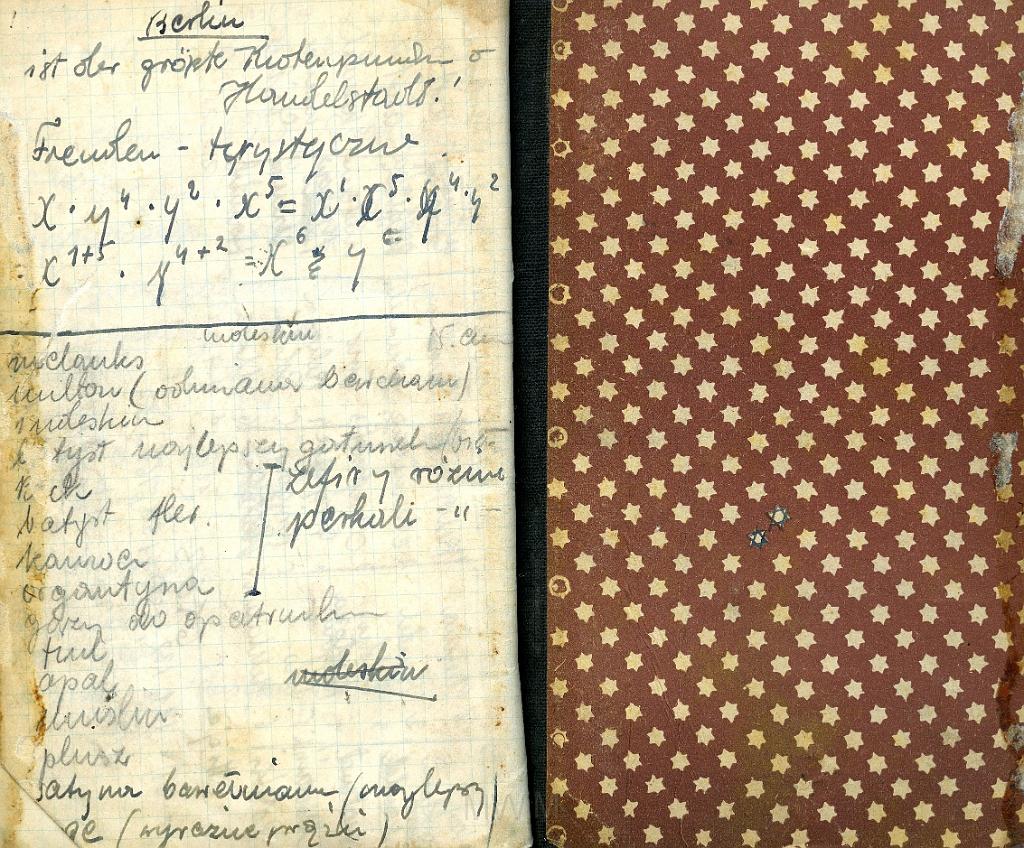 Berlin
ist der größte Knotenpunkt o
Handelstadt!
Fremden - turystyczne
x · y⁴ · y² · x⁵ = x¹ · x⁵ · y⁴ · y²
x¹⁺⁵ · y⁴⁺² = x⁶ y⁶
moleskin 15. cm
melanks
multon (odmiana barchanu)
moleskin
batyst najlepszy gatunek
zefiry różne
perkali - " -
batyst
organtyna
gazy do opatrunku
tiul
opal
moleskin
muślin
plusz
satyna bawełniana (najlepszy)
(wyraźne prążki)